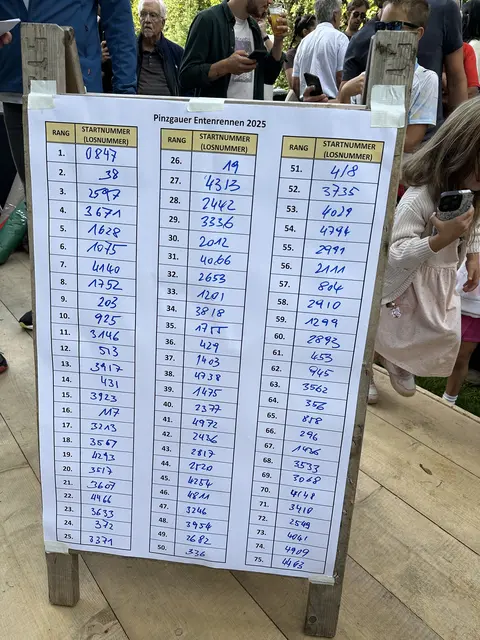 Pinzgauer Entenrennen 2025
RANG STARTNUMMER (LOSNUMMER)
1. 0847
2. 38
3. 2597
4. 3671
5. 1628
6. 1075
7. 4140
8. 1752
9. 203
10. 925
11. 3146
12. 513
13. 3917
14. 431
15. 3923
16. 117
17. 3213
18. 3567
19. 4293
20. 3517
21. 3607
22. 4466
23. 3633
24. 372
25. 3371
RANG STARTNUMMER (LOSNUMMER)
26. 19
27. 4313
28. 2442
29. 3336
30. 2012
31. 4066
32. 2653
33. 1201
34. 3818
35. 1755
36. 429
37. 1403
38. 4738
39. 1475
40. 2377
41. 4972
42. 2436
43. 2817
44. 2520
45. 4254
46. 4811
47. 3246
48. 3954
49. 2682
50. 336
RANG STARTNUMMER (LOSNUMMER)
51. 418
52. 3735
53. 4029
54. 4794
55. 2991
56. 2111
57. 804
58. 2910
59. 1299
60. 2893
61. 453
62. 945
63. 3562
64. 356
65. 858
66. 296
67. 1436
68. 3533
69. 3068
70. 4148
71. 3410
72. 2549
73. 4061
74. 4909
75. 4463